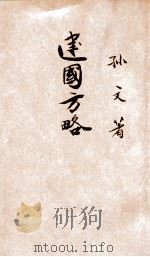 建國方略
孙文著
研狗
mtoou.info